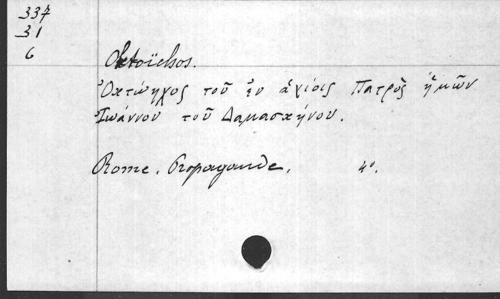 337
31
6
Oktoïchos.
Ὀκτώηχος τοῦ ἐν ἁγίοις Πατρὸς ἡμῶν
Ἰωάννου τοῦ Δαμασκήνου.
Rome. Propagande. 4°.